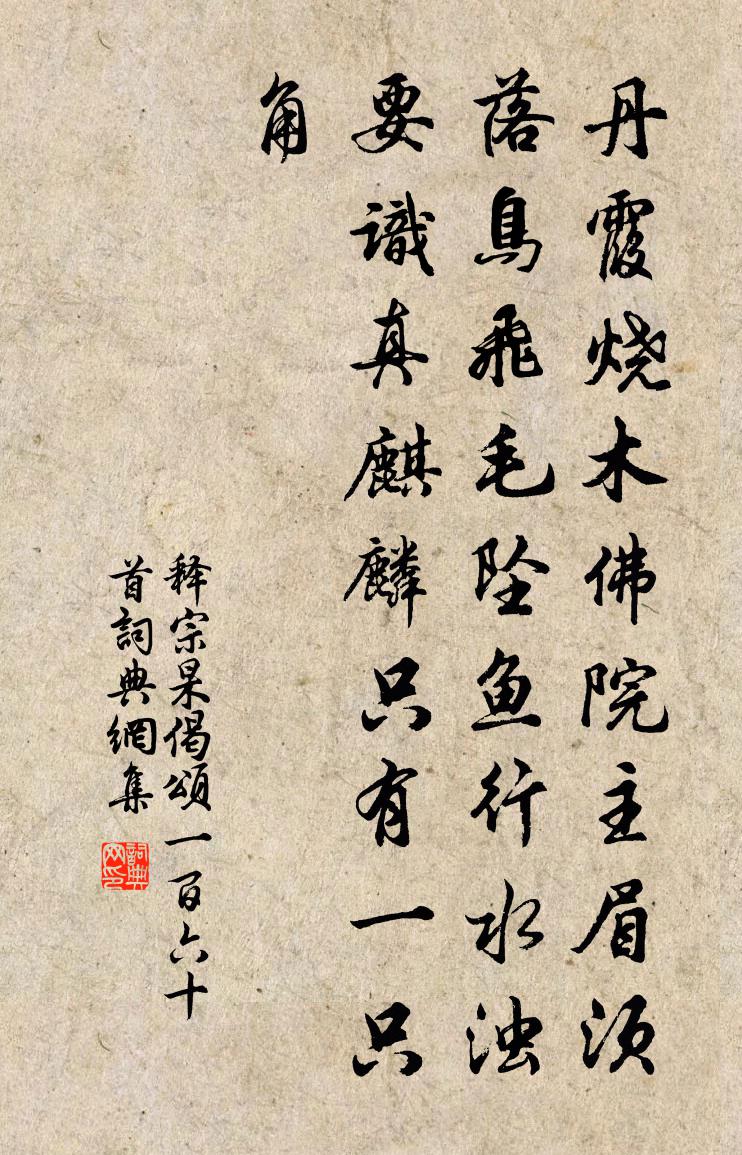 丹霞烧木佛院主眉须
落鸟飛毛坠鱼行水浊
要識真麒麟只有一只
角
释宗杲偈頌一百六十
首詞典網集
詞典
网印